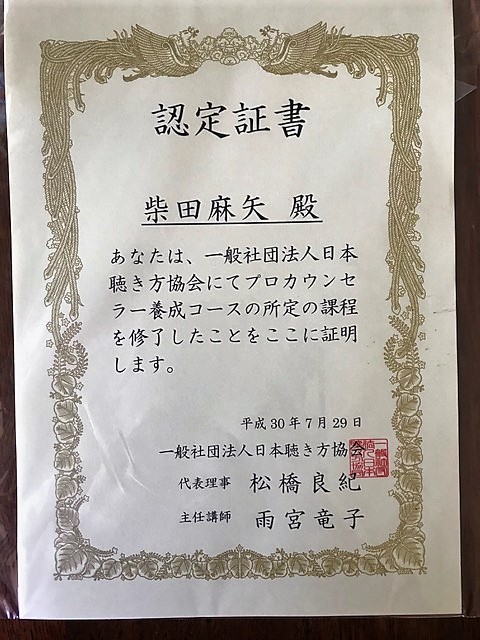 認定証書
柴田麻矢 殿
あなたは、一般社団法人日本
聴き方協会にてプロカウンセ
ラー養成コースの所定の課程
を修了したことをここに証明
します。
平成30年7月29日
一般社団法人日本聴き方協会
代表理事 松橋良紀
主任講師 雨宮竜子